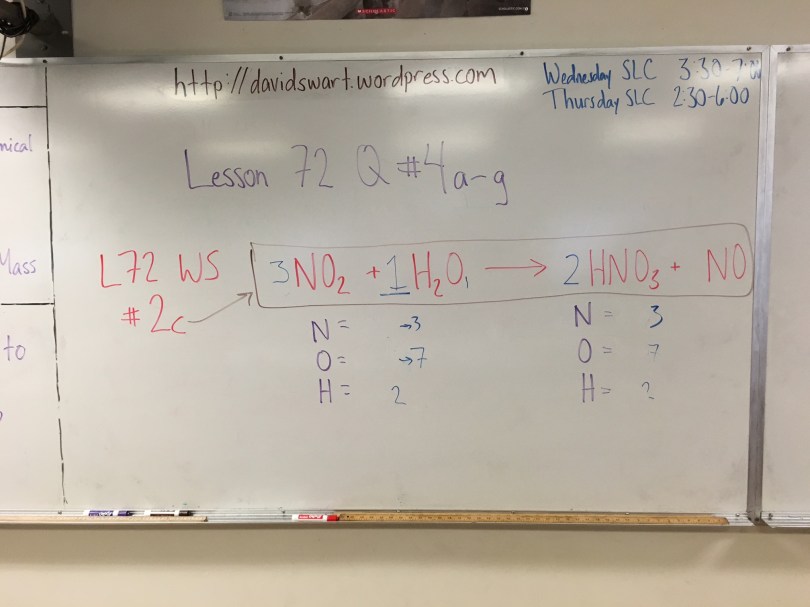 SCHOLASTIC
http://davidswart.wordpress.com
Wednesday SLC 3:30-7:00
Thursday SLC 2:30-6:00
mical
Mass
to
Lesson 72 Q #4a-g
L72 WS
#2c
3NO₂ + 1H₂O₁ → 2HNO₃ + NO
N = →3
O = →7
H = 2
N = 3
O = 7
H = 2